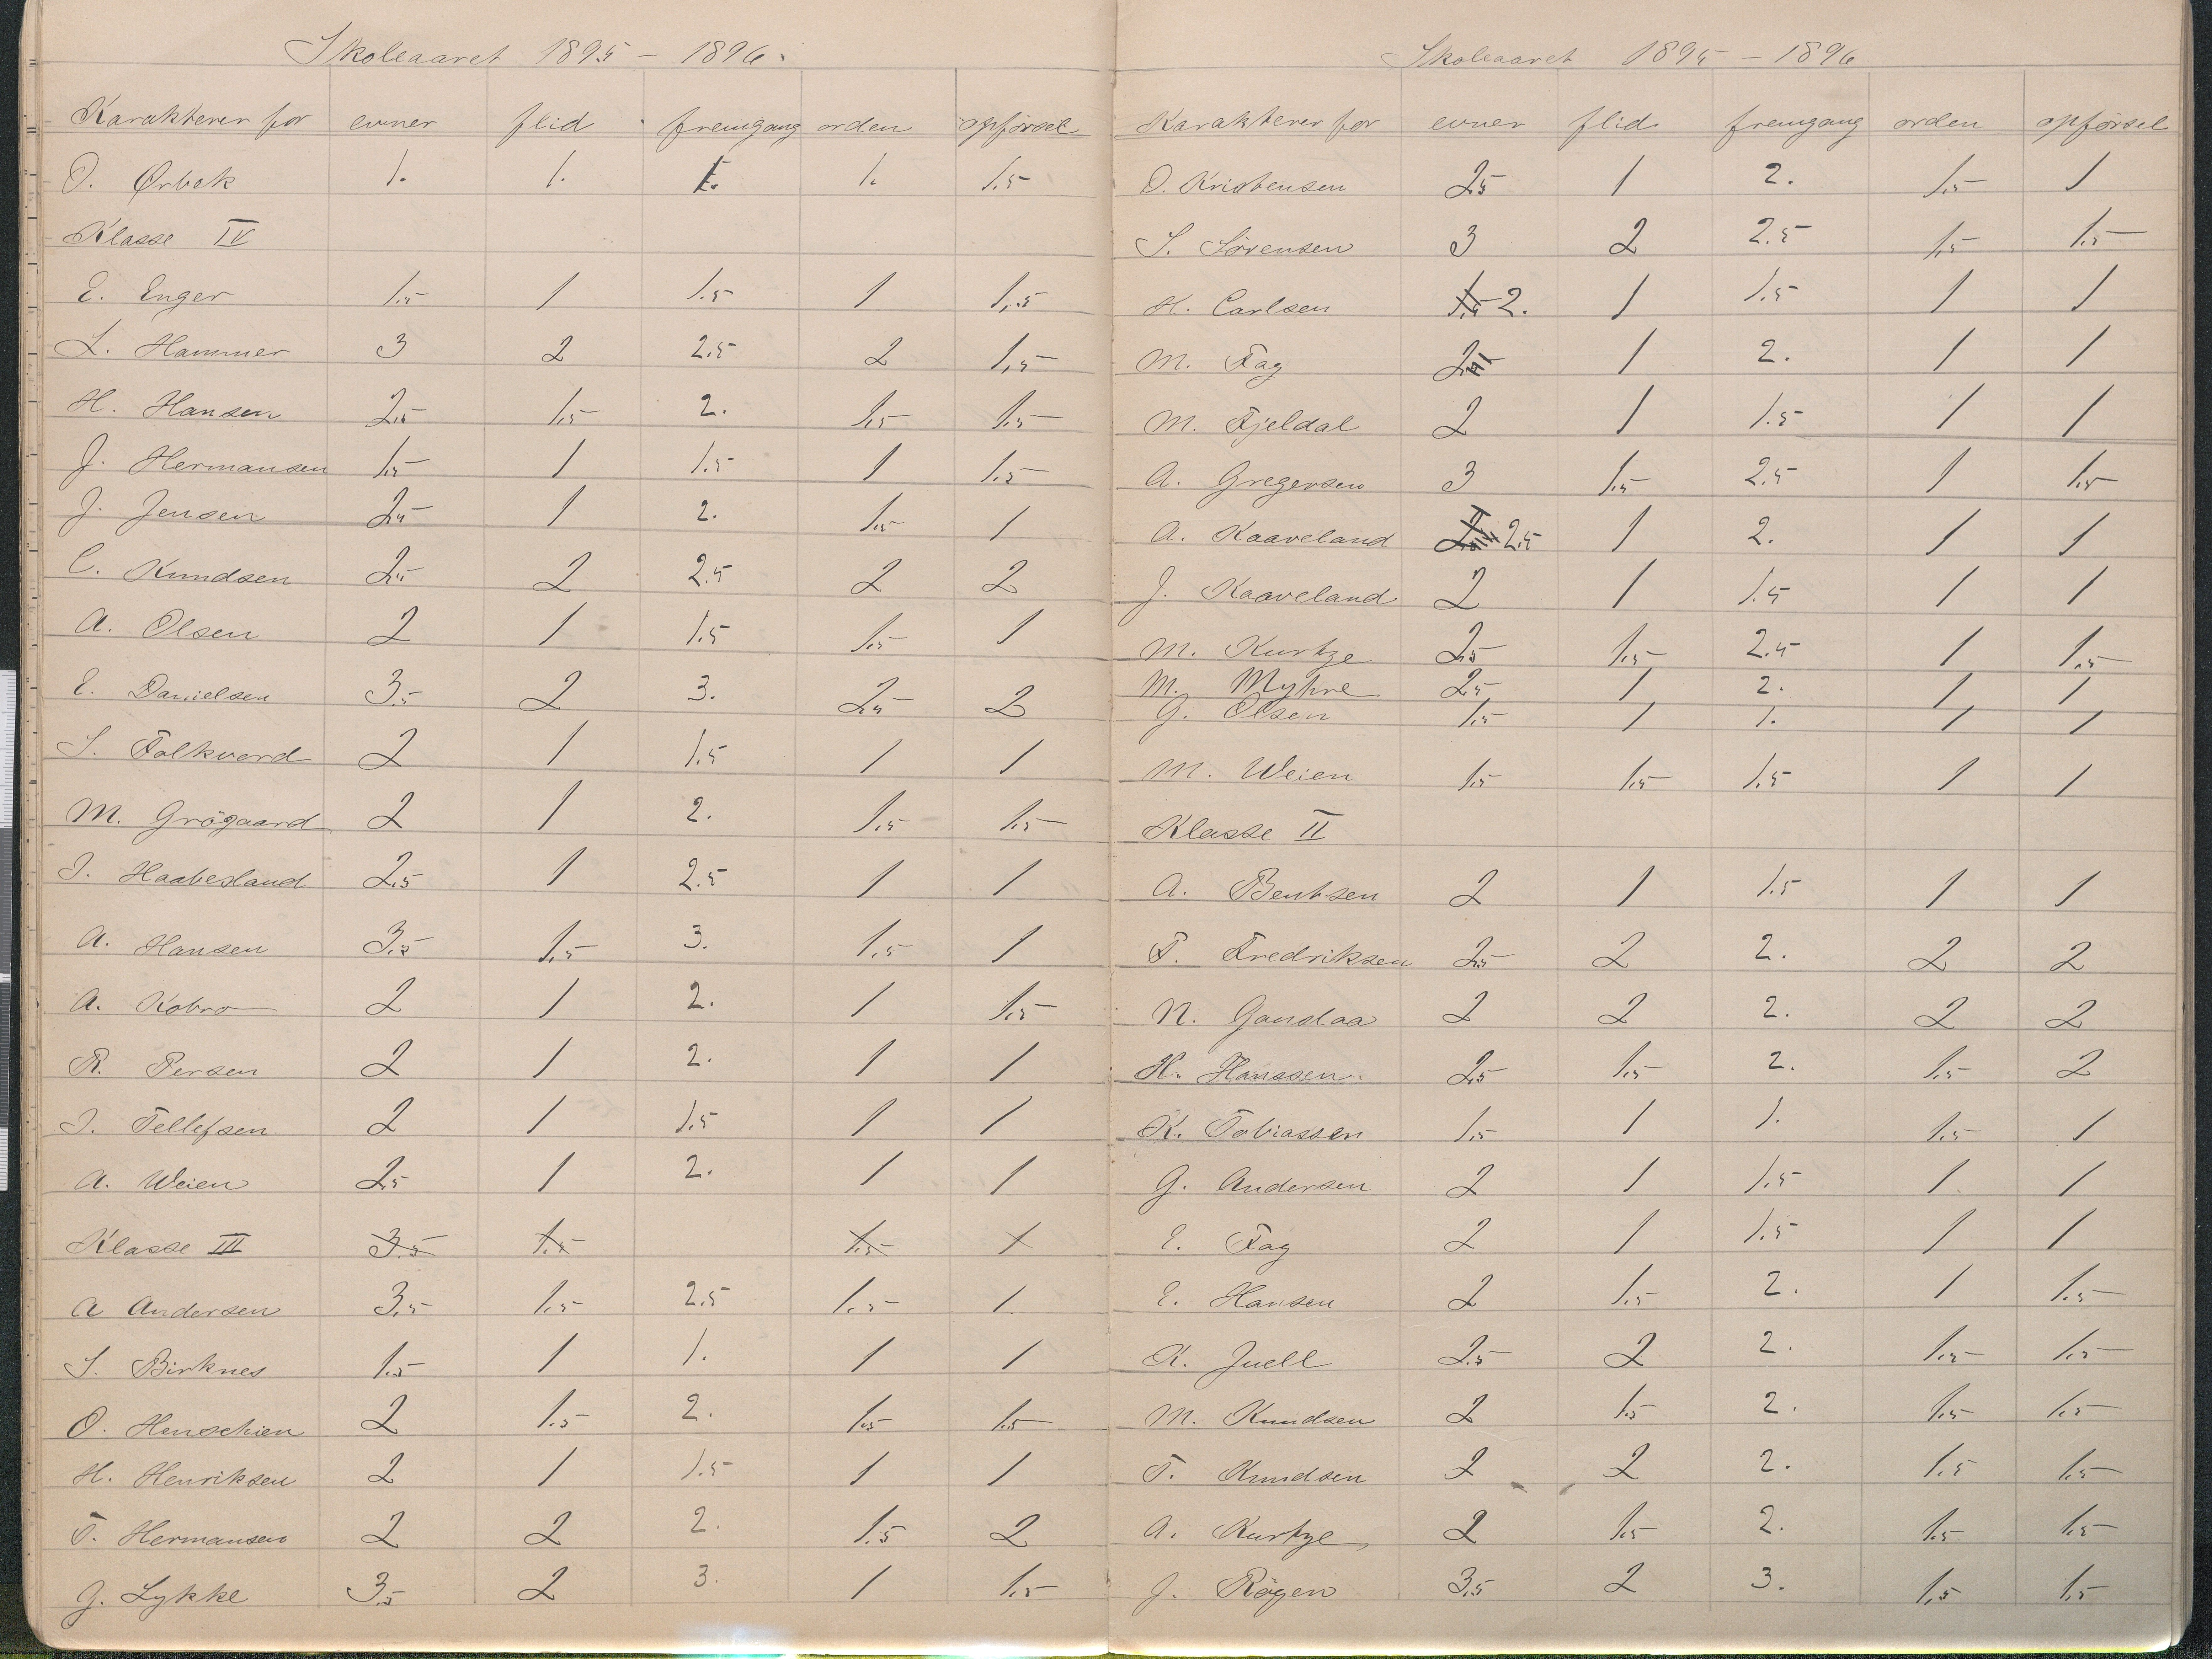 Skoleaaret 1895 - 1896.
Karakterer for evner flid fremgang orden opførsel
O. Ørbek 1. 1. 1. 1. 1.5
Klasse IV
E. Enger 1.5 1 1.5 1 1,.5
L. Hammer 3 2 2.5 2 1,5
H. Hansen 2.5 1.5 2. 1.5 1.5
J. Hermansen 1.5 1 1.5 1 1.5
J. Jensen 2.5 1 2. 1.5 1
C. Knudsen 2.5 2 2.5 2 2
A. Olsen 2 1 1.5 1.5 1
E. Danielsen 3.5 2 3. 2.5 2
S. Falkverd 2 1 1.5 1 1
M. Grögaard 2 1 2. 1.5 1.5
I. Haabesland 2.5 1 2.5 1 1
A. Hansen 3.5 1.5 3. 1.5 1
A. Kobro 2 1 2. 1 1.5
R. Persen 2 1 2. 1 1
I. Tellefsen 2 1 1.5 1 1
A. Weien 2.5 1 2. 1 1
Klasse III 3.5 1.5 1.5 1
A Andersen 3.5 1.5 2.5 1.5 1
S. Birknes 1.5 1 1. 1 1
O. Henschien 2 1.5 2. 1.5 1.5
H. Henriksen 2 1 1.5 1 1
T. Hermansen 2 2 2. 1.5 2
J. Lykke 3.5 2 3. 1 1.5
Skoleaaret 1895 - 1896
Karakterer for evner flid fremgang orden opførsel
O. Kristensen 2.5 1 2. 1.5 1
S. Sörensen 3 2 2.5 1.5 1.5
H. Carlsen 1.5 2. 1 1.5 1 1
M. Fag 2 1 2. 1 1
M. Fjeldal 2 1 1.5 1 1
A. Gregersen 3 1.5 2.5 1 1.5
A. Kaaveland 2.5 1 2. 1 1
J. Kaaveland 2 1 1.5 1 1
M. Kurtze 2.5 1.5 2.5 1 1.5
M. Myhre 2.5 1 2. 1 1
G. Olsen 1.5 1 1. 1 1
M. Weien 1.5 1.5 1.5 1 1
Klasse II
A. Bentsen 2 1 1.5 1 1
F. Fredriksen 2.5 2 2. 2 2
N. Gaudaa 2 2 2. 2 2
H. Hanssen. 2.5 1.5 2. 1.5 2
K. Tobiassen 1.5 1 1. 1.5 1
G. Andersen 2 1 1.5 1 1
E. Fag 2 1 1.5 1 1
E. Hansen 2 1.5 2. 1 1.5
K. Juell 2.5 2 2. 1.5 1.5
M. Knudsen 2 1.5 2. 1.5 1.5
T. Knudsen 2 2 2. 1.5 1.5
A. Kurtze 2 1.5 2. 1.5 1.5
J. Rögen 3.5 2 3. 1.5 1.5